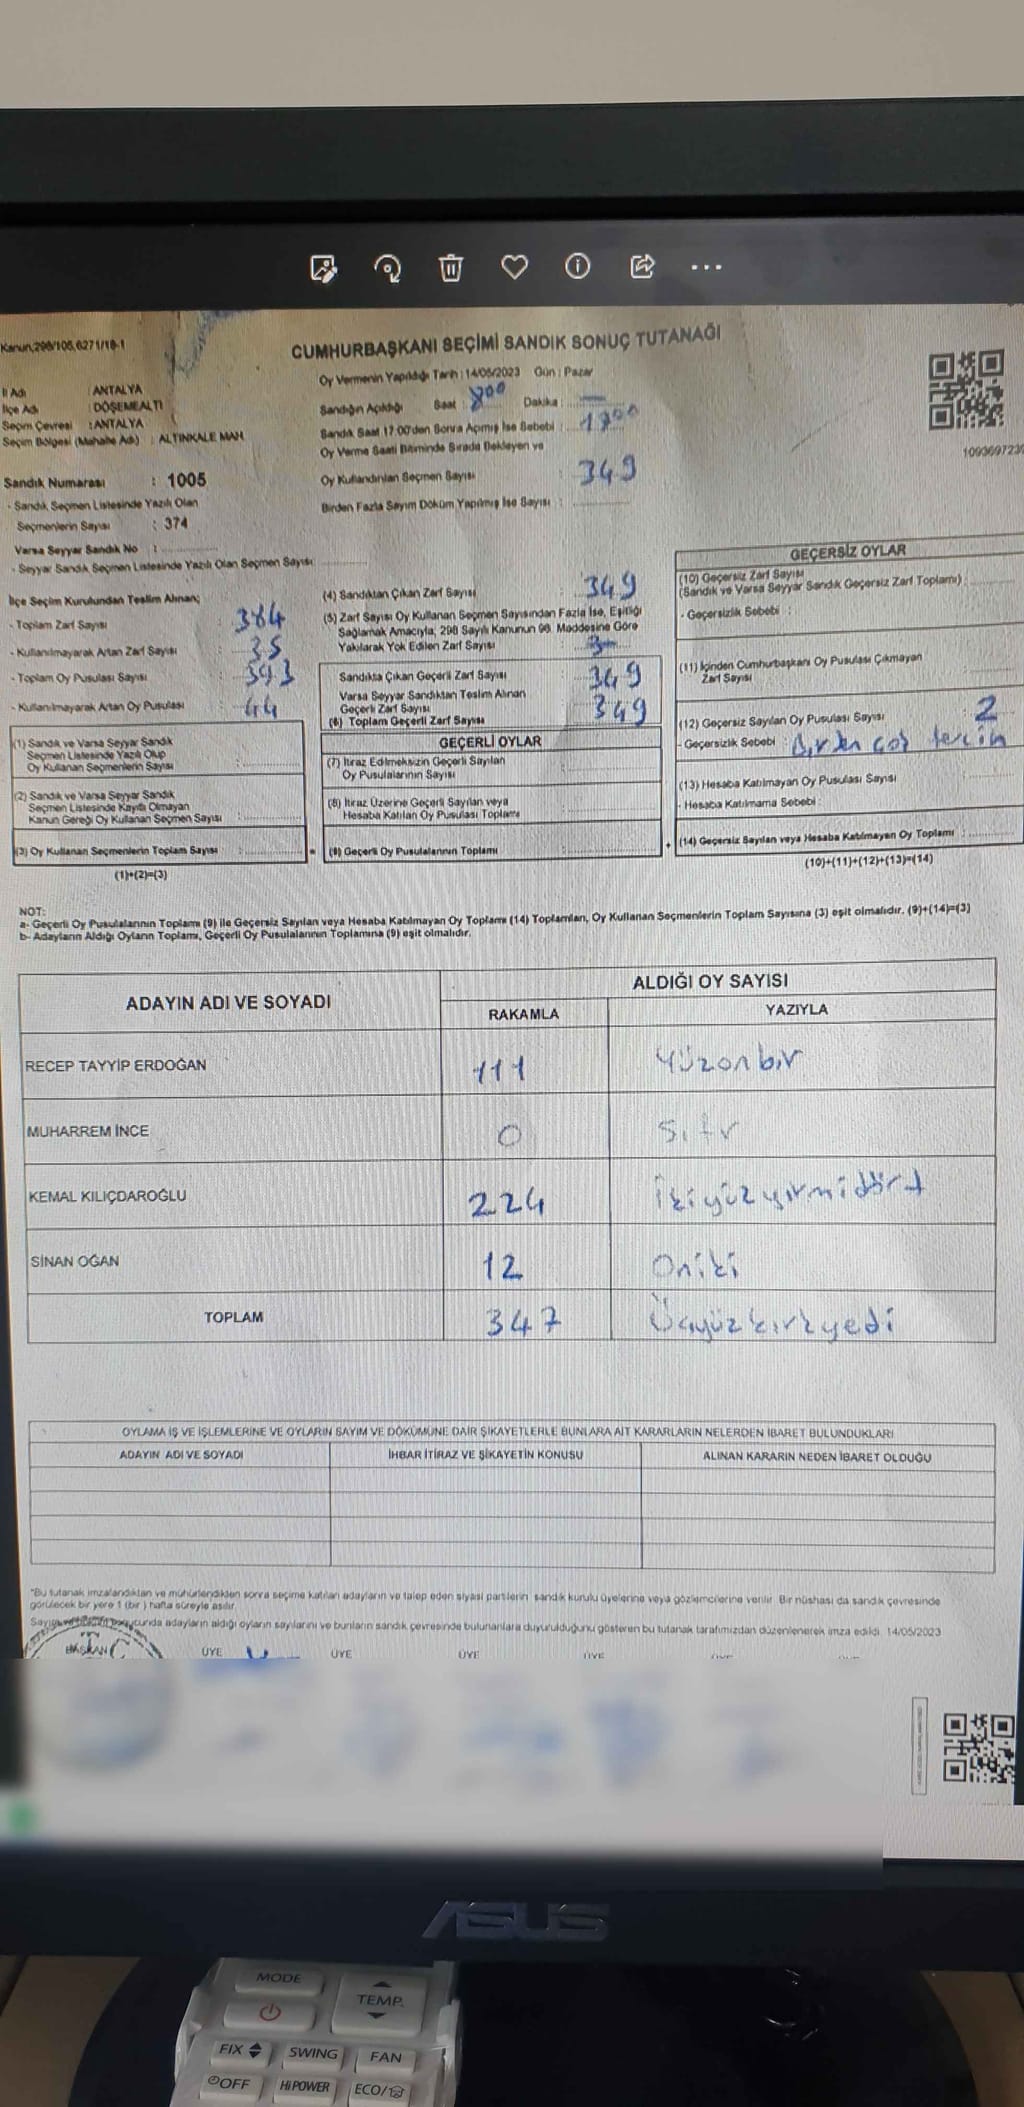 Kanun,298/105,6271/18-1
CUMHURBAŞKANI SEÇİMİ SANDIK SONUÇ TUTANAĞI
Oy Vermenin Yapıldığı Tarih : 14/05/2023 Gün : Pazar
İl Adı : ANTALYA
İlçe Adı : DÖŞEMEALTI
Seçim Çevresi : ANTALYA
Seçim Bölgesi (Mahalle Adı) : ALTINKALE MAH.
Sandık Numarası : 1005
- Sandık Seçmen Listesinde Yazılı Olan
Seçmenlerin Sayısı : 374
Varsa Seyyar Sandık No :
- Seyyar Sandık Seçmen Listesinde Yazılı Olan Seçmen Sayısı:
Sandığın Açıldığı Saat : 800 Dakika : —
Sandık Saat 17:00'den Sonra Açımış İse Sebebi : 1700
Oy Verme Saati Bitiminde Sırada Bekleyen ve
Oy Kullandırılan Seçmen Sayısı : 349
Birden Fazla Sayım Döküm Yapılmış İse Sayısı :
İlçe Seçim Kurulundan Teslim Alınan;
- Toplam Zarf Sayısı : 384
- Kullanılmayarak Artan Zarf Sayısı : 35
- Toplam Oy Pusulası Sayısı : 393
- Kullanılmayarak Artan Oy Pusulası : 44
(1) Sandık ve Varsa Seyyar Sandık
Seçmen Listesinde Yazılı Olup
Oy Kullanan Seçmenlerin Sayısı :
(2) Sandık ve Varsa Seyyar Sandık
Seçmen Listesinde Kayıtlı Olmayan
Kanun Gereği Oy Kullanan Seçmen Sayısı :
(3) Oy Kullanan Seçmenlerin Toplam Sayısı : =
(1)+(2)=(3)
(4) Sandıktan Çıkan Zarf Sayısı : 349
(5) Zarf Sayısı Oy Kullanan Seçmen Sayısından Fazla İse, Eşitliği
Sağlamak Amacıyla, 298 Sayılı Kanunun 98. Maddesine Göre
Yakılarak Yok Edilen Zarf Sayısı :
Sandıkta Çıkan Geçerli Zarf Sayısı : 349
Varsa Seyyar Sandıktan Teslim Alınan
Geçerli Zarf Sayısı
(6) Toplam Geçerli Zarf Sayısı : 349
GEÇERLİ OYLAR
(7) İtiraz Edilmeksizin Geçerli Sayılan
Oy Pusulalarının Sayısı :
(8) İtiraz Üzerine Geçerli Sayılan veya
Hesaba Katılan Oy Pusulası Toplamı :
(9) Geçerli Oy Pusulalarının Toplamı : +
GEÇERSİZ OYLAR
(10) Geçersiz Zarf Sayısı
(Sandık ve Varsa Seyyar Sandık Geçersiz Zarf Toplamı) :
- Geçersizlik Sebebi :
(11) İçinden Cumhurbaşkanı Oy Pusulası Çıkmayan
Zarf Sayısı :
(12) Geçersiz Sayılan Oy Pusulası Sayısı : 2
- Geçersizlik Sebebi : Birden çok tercih
(13) Hesaba Katılmayan Oy Pusulası Sayısı :
- Hesaba Katılmama Sebebi :
(14) Geçersiz Sayılan veya Hesaba Katılmayan Oy Toplamı :
(10)+(11)+(12)+(13)=(14)
NOT:
a- Geçerli Oy Pusulalarının Toplamı (9) ile Geçersiz Sayılan veya Hesaba Katılmayan Oy Toplamı (14) Toplamları, Oy Kullanan Seçmenlerin Toplam Sayısına (3) eşit olmalıdır. (9)+(14)=(3)
b- Adayların Aldığı Oyların Toplamı, Geçerli Oy Pusulalarının Toplamına (9) eşit olmalıdır.
ADAYIN ADI VE SOYADI
ALDIĞI OY SAYISI
RAKAMLA YAZIYLA
RECEP TAYYİP ERDOĞAN 111 Yüzonbir
MUHARREM İNCE 0 Sıfır
KEMAL KILIÇDAROĞLU 224 İkiyüzyirmidört
SİNAN OĞAN 12 Oniki
TOPLAM 347 Üçyüzkırkyedi
OYLAMA İŞ VE İŞLEMLERİNE VE OYLARIN SAYIM VE DÖKÜMÜNE DAİR ŞİKAYETLERLE BUNLARA AİT KARARLARIN NELERDEN İBARET BULUNDUKLARI
ADAYIN ADI VE SOYADI İHBAR İTİRAZ VE ŞİKAYETİN KONUSU ALINAN KARARIN NEDEN İBARET OLDUĞU
*Bu tutanak imzalandıktan ve mühürlendikten sonra seçime katılan adayların ve talep eden siyasi partilerin sandık kurulu üyelerine veya gözlemcilerine verilir. Bir nüshası da sandık çevresinde
görülecek bir yere 1 (bir) hafta süreyle asılır.
Sayım ve döküm sonucunda adayların aldığı oyların sayılarını ve bunların sandık çevresinde bulunanlara duyurulduğunu gösteren bu tutanak tarafımızdan düzenlenerek imza edildi. 14/05/2023
BAŞKAN ÜYE ÜYE ÜYE ÜYE
ASUS
MODE
TEMP.
FIX SWING FAN
OFF HiPOWER ECO/